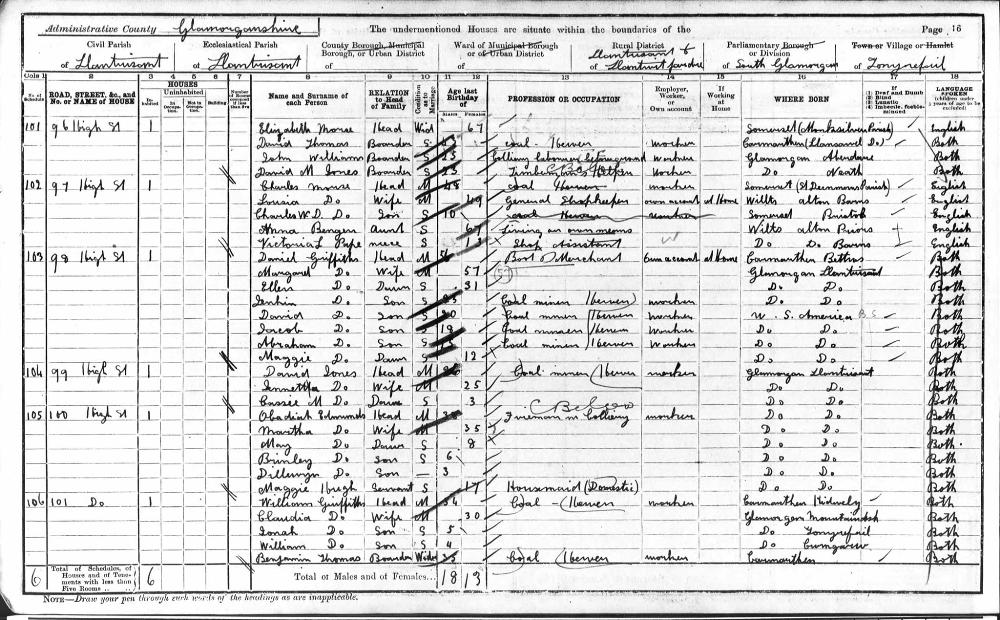 Administrative County Glamorganshire The undermentioned Houses are situate within the boundaries of the Page 16
Civil Parish of Llantrisant
Ecclesiastical Parish of Llantrisant
County Borough, Municipal Borough, or Urban District
Ward of Municipal Borough or of Urban District
Rural District of Llantrisant & Llantwit fardre
Parliamentary Borough or Division of South Glamorgan
Town or Village or Hamlet of Tonyrefail
Cols 1 2 3 4 5 6 7 8 9 10 11 12 13 14 15 16 17 18
No. of Schedule
ROAD, STREET, &c., and No. or NAME of HOUSE
HOUSES
Inhabited
Uninhabited
In Occupation
Not in Occupation
Building
Name and Surname of each Person
RELATION to Head of Family
Condition as to Marriage
Age last Birthday of
Males Females
PROFESSION OR OCCUPATION
Employer, Worker, or Own account
If Working at Home
WHERE BORN
If (1) Deaf and Dumb (2) Blind (3) Lunatic (4) Imbecile, feeble-minded
LANGUAGE SPOKEN
101 96 High St 1 Elizabeth Morse Head Wid 67 Somerset (Monksilver Parish) English
David Thomas Boarder S Coal Hewer worker Carmarthen (Llansawel Do) Both
John Williams Boarder S 25 Colliery labourer belowground Worker Glamorgan Aberdare Both
David M Jones Boarder S 23 Timberman's Helper Worker Do Neath Both
102 97 High St 1 Charles Morse Head M 48 coal Hewer worker Somerset English
Louisa Do Wife M 49 General Shopkeeper own account at Home Wilts alton Barns English
Charles W.D. Do Son S 10 coal Hewer Somerset Bristol English
Anna Bengen Aunt S 67 Living on own means Wilts alton Priors English
Victoria L Pope niece S 13 Shop Assistant Do Do Barns English
103 98 High St 1 Daniel Griffiths Head M 56 Boot Merchant Own account at Home Carmarthen Bettws Both
Margaret Do Wife M 57 Glamorgan Llantrisant Both
Ellen Do Daur S 31 Do Do Both
Jenkin Do Son S 25 Coal miner (Hewer) worker Do Do Both
David Do Son S 20 Coal miner (Hewer Worker W. S. America B S Both
Jacob Do Son S 18 Coal miner (Hewer Worker Do Do Both
Abraham Do Son S Coal miner (Hewer Worker Do Do Both
Maggie Do Daur S 12 Do Do Both
104 99 High St 1 David Jones Head M Coal miner (Hewer worker Glamorgan Llantrisant Both
Jennetta Do Wife M 25 Do Do Both
Cassie M Do Daur S 3 Do Do Both
105 100 High St 1 Obadiah Edmunds Head M Fireman in Colliery worker Do Do Both
Martha Do Wife M 35 Do Do Both
May Do Daur S 8 Do Do Both
Brinley Do Son S 6 Do Do Both
Dillwyn Do Son — 3 Do Do Both
Maggie Hugh Servant S 17 Housemaid (Domestic) Do Do Both
106 101 Do 1 William Griffiths Head M 34 Coal - (Hewer worker Carmarthen Kidwely Both
Claudia Do Wife M 30 Glamorgan Mountainash Both
Jonah Do Son S 5 Do Tonyrefail Both
William Do Son S 4 Do Both
Benjamin Thomas Boarder Widr 35 Coal (Hewer worker Carmarthen Both
6 Total of Schedules, of Houses and of Tenements with less than Five Rooms 6 Total of Males and of Females... 18 13
NOTE—Draw your pen through such words of the headings as are inapplicable.